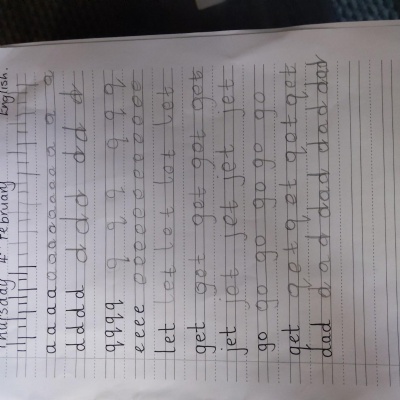 Thursday 4th February English.
a a a a a a a a a a a a a a a a
d d d d d d d d d d d
q q q q q q q q q q
e e e e e e e e e e e e e e e
let let lot lot let
get got got got got
jet jot jet jet jet
go go go go go go
get get get got get
dad dad dad dad dad